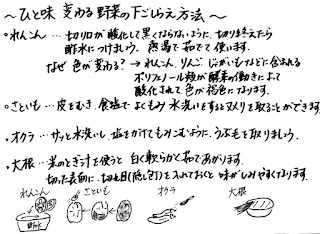 ～ひと味 変わる 野菜の下ごしらえ方法～
・れんこん … 切り口が酸化して黒くならないように、切り終えたら
酢水につけましょう。熱湯で茹でて使います。
なぜ 色が変わる? → れんこん、りんご、じゃがいもなどに含まれる
ポリフェノール類が酵素の働きによって
酸化されて色が褐色になります。
・さといも … 皮をむき、食塩でよくもみ水洗いをするとヌメリを取ることができます。
・オクラ … サッと水洗いし、塩をかけてもみこむように、うぶ毛を取りましょう。
・大根 … 米のとぎ汁を使うと 白く軟らかく茹であがります。
切った表面に、切れ目(隠し包丁)を入れておくと 味がしみやすくなります。
れんこん さといも オクラ 大根
酢水